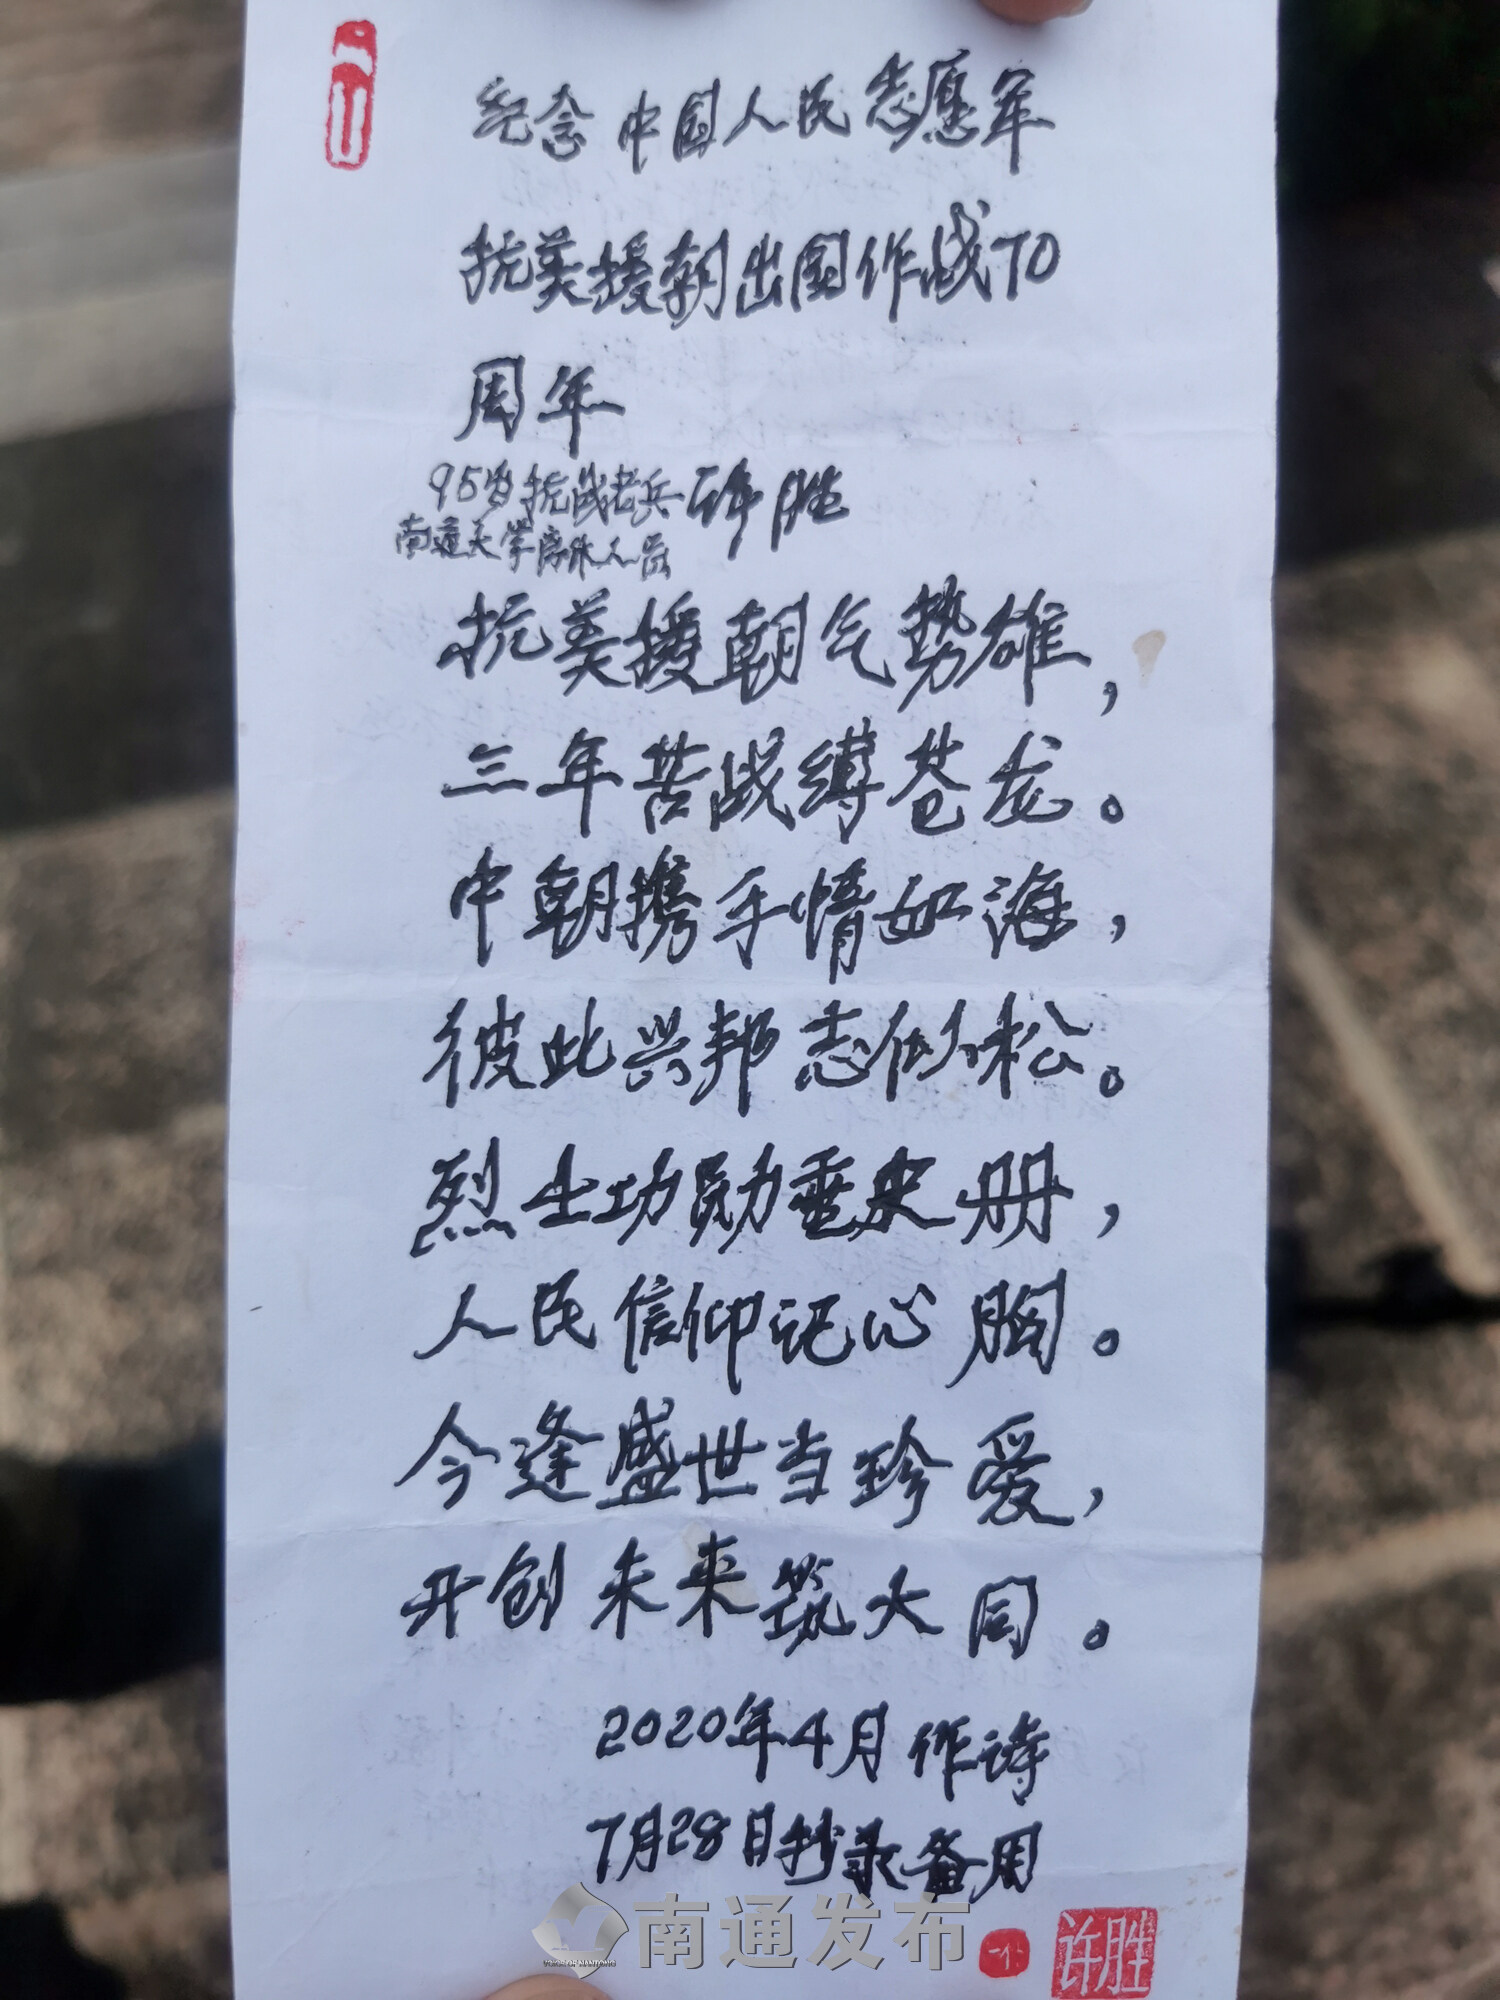 纪念中国人民志愿军
抗美援朝出国作战70
周年
95岁抗战老兵 许胜
南通大学离休人员
抗美援朝气势雄，
三年苦战缚苍龙。
中朝携手情如海，
彼此兴邦志似松。
烈士功勋垂史册，
人民信仰记心胸。
今逢盛世当珍爱，
开创未来筑大同。
2020年4月作诗
7月28日抄录备用
南通发布
VOICE OF NANTONG
许胜